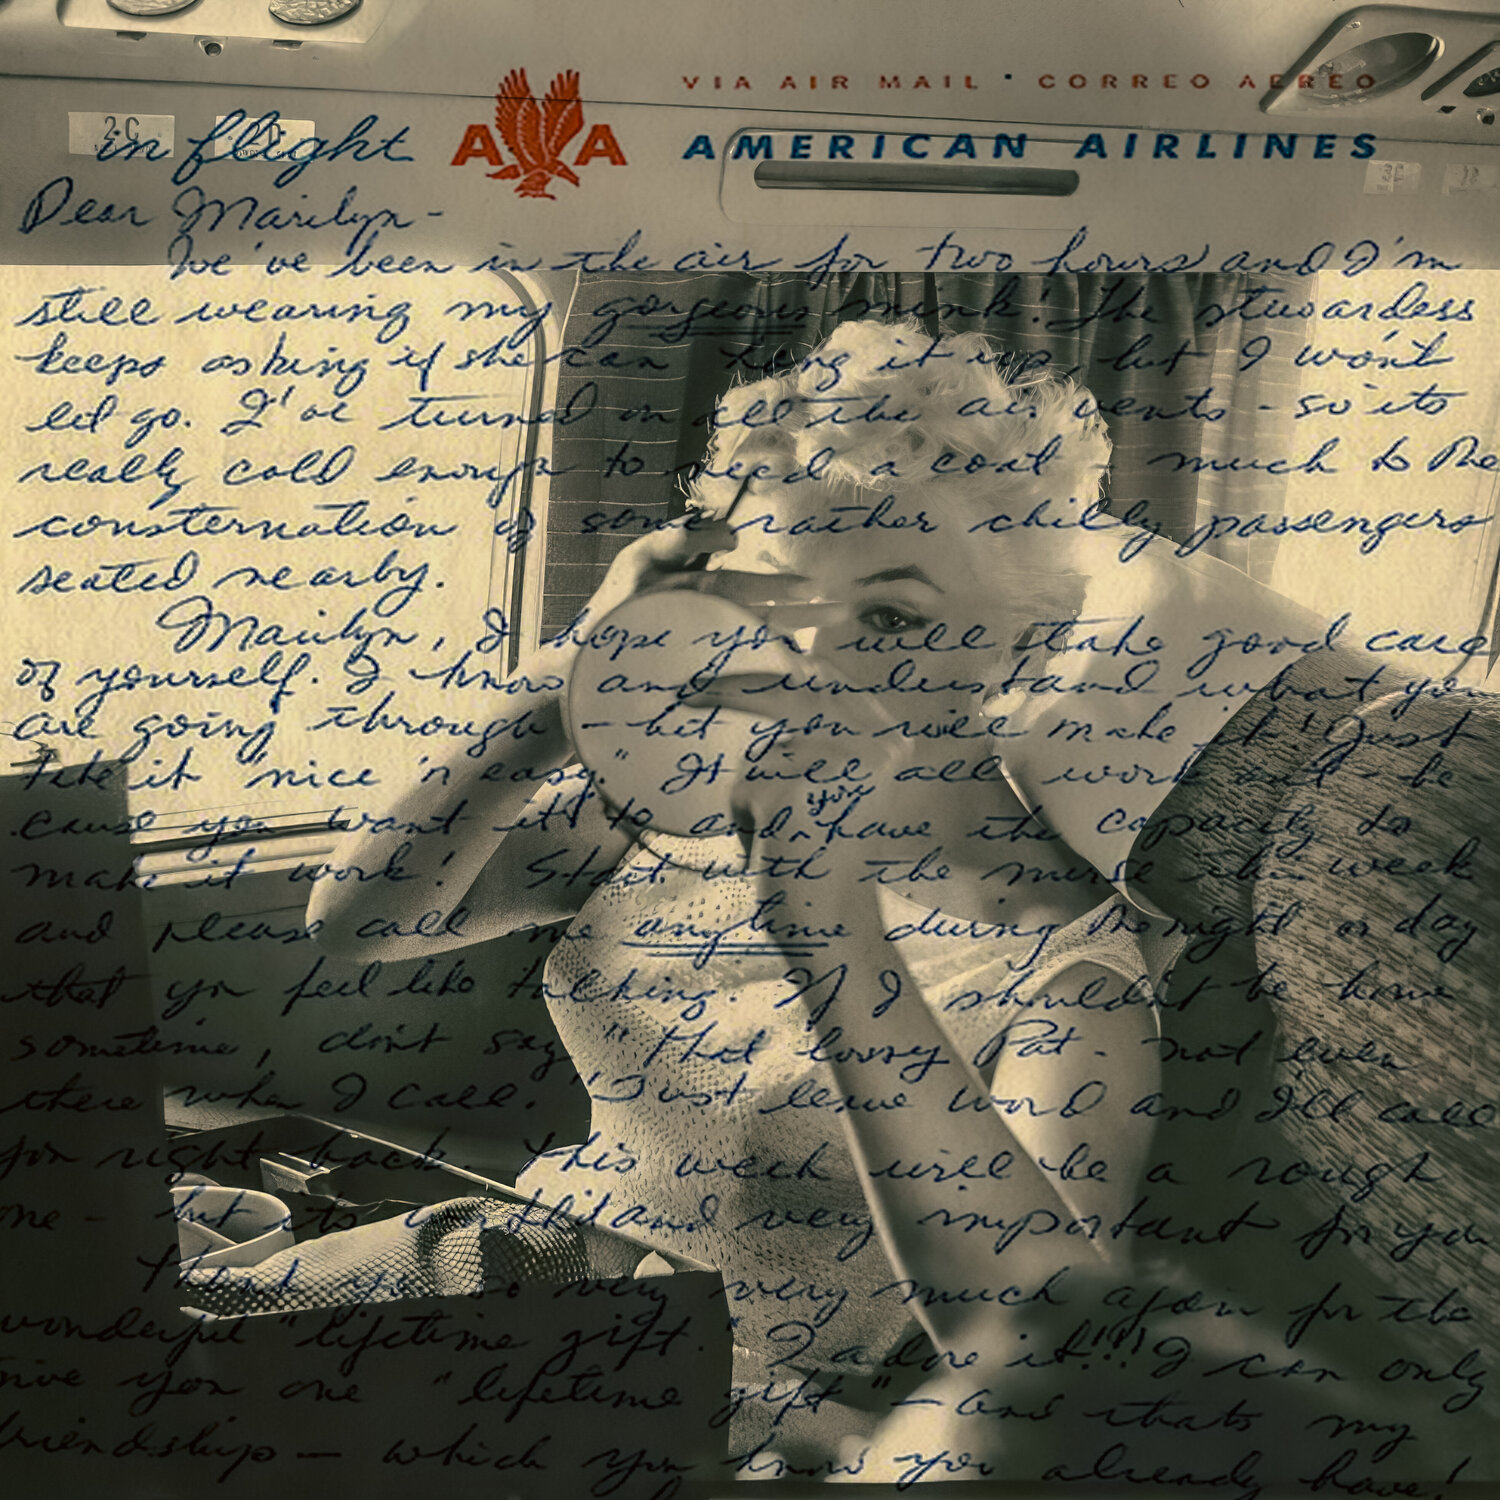 VIA AIR MAIL · CORREO AEREO
2-C
in flight
AA
AMERICAN AIRLINES
Dear Marilyn-
We've been in the air for two hours and I'm
still wearing my gorgeous mink! The stewardess
keeps asking if she can hang it up, but I won't
let go. I've turned on all the air vents - so its
really cold enough to need a coat - much to the
consternation of some rather chilly passengers
seated nearby.
Marilyn, I hope you will take good care
of yourself. I know and understand what you
are going through - but you will make it! Just
take it "nice 'n easy." It will all work out - be
cause you want it to and you have the capacity to
make it work! Start with the nurse this week
and please call me anytime during the night or day
that you feel like talking. If I shouldn't be home
sometime, don't say "that lousy Pat - not even
there when I call." Just leave word and I'll call
you right back. This week will be a rough
one - but its and very important for you
Thank you so very very much again for the
wonderful "lifetime gift." I adore it!!! I can only
give you one "lifetime gift" - and thats my
friendship - which you know you already have!